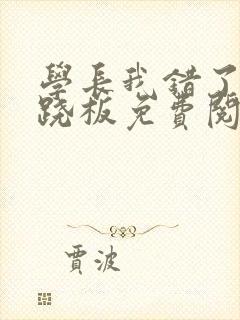 學長我錯了
蹺板免費閱
賈波